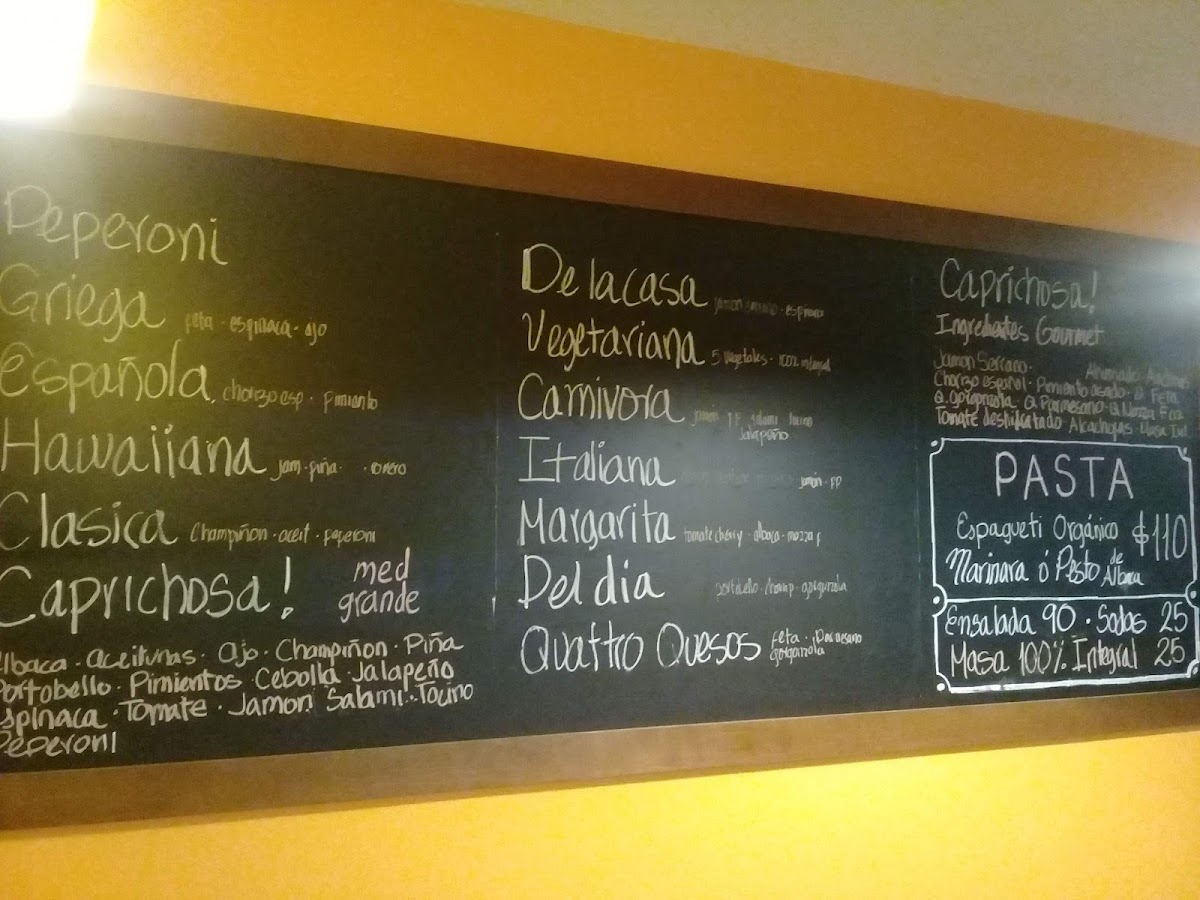 Peperoni
Griega feta · espinaca · ajo
Española, chorizo esp · pimiento
Hawaiiana jam · piña · romero
Clasica Champiñon · aceit · peperoni
Caprichosa! med grande
Albaca · Aceitunas · Ajo · Champiñon · Piña
Portobello · Pimientos Cebolla · Jalapeño
Espinaca · Tomate · Jamon Salami · Tocino
Peperoni
De la casa jamon · espinaca
Vegetariana 5 vegetales · 100% integral
Carnivora jamon · pp salami tocino
Jalapeño
Italiana jamón · pp
Margarita tomate cherry · albaca · mozza f
Del dia portobello · gorgonzola
Quattro Quesos feta · Parmesano
gorgonzola
Caprichosa!
Ingredientes Gourmet
Jamon Serrano ·
Chorizo español · Pimiento asado · Q Feta
Q. gorgonzola · Q Parmesano · Q Mozza Fca
Tomate deshidratado Alcachofas · Masa Int
PASTA
Espagueti Orgánico $110
Marinara ó Pesto de Albaca
Ensalada 90 · Sodas 25
Masa 100% Integral 25